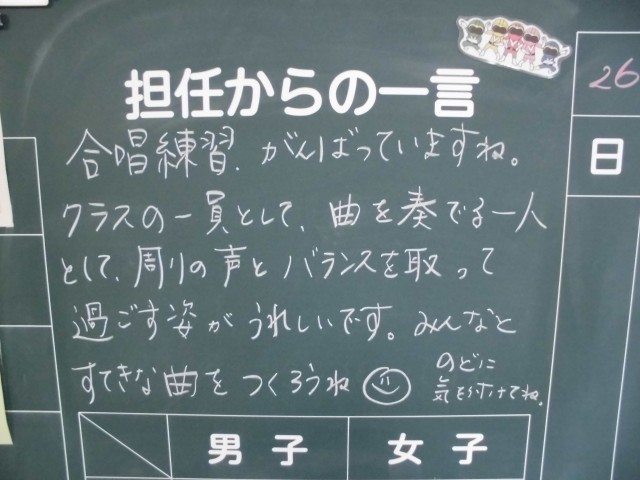 担任からの一言
26
日
合唱練習、がんばっていますね。
クラスの一員として、曲を奏でる一人
として、周りの声とバランスを取って
過ごす姿がうれしいです。みんなと
すてきな曲をつくろうね
のどに
気を付けてね。
男子
女子